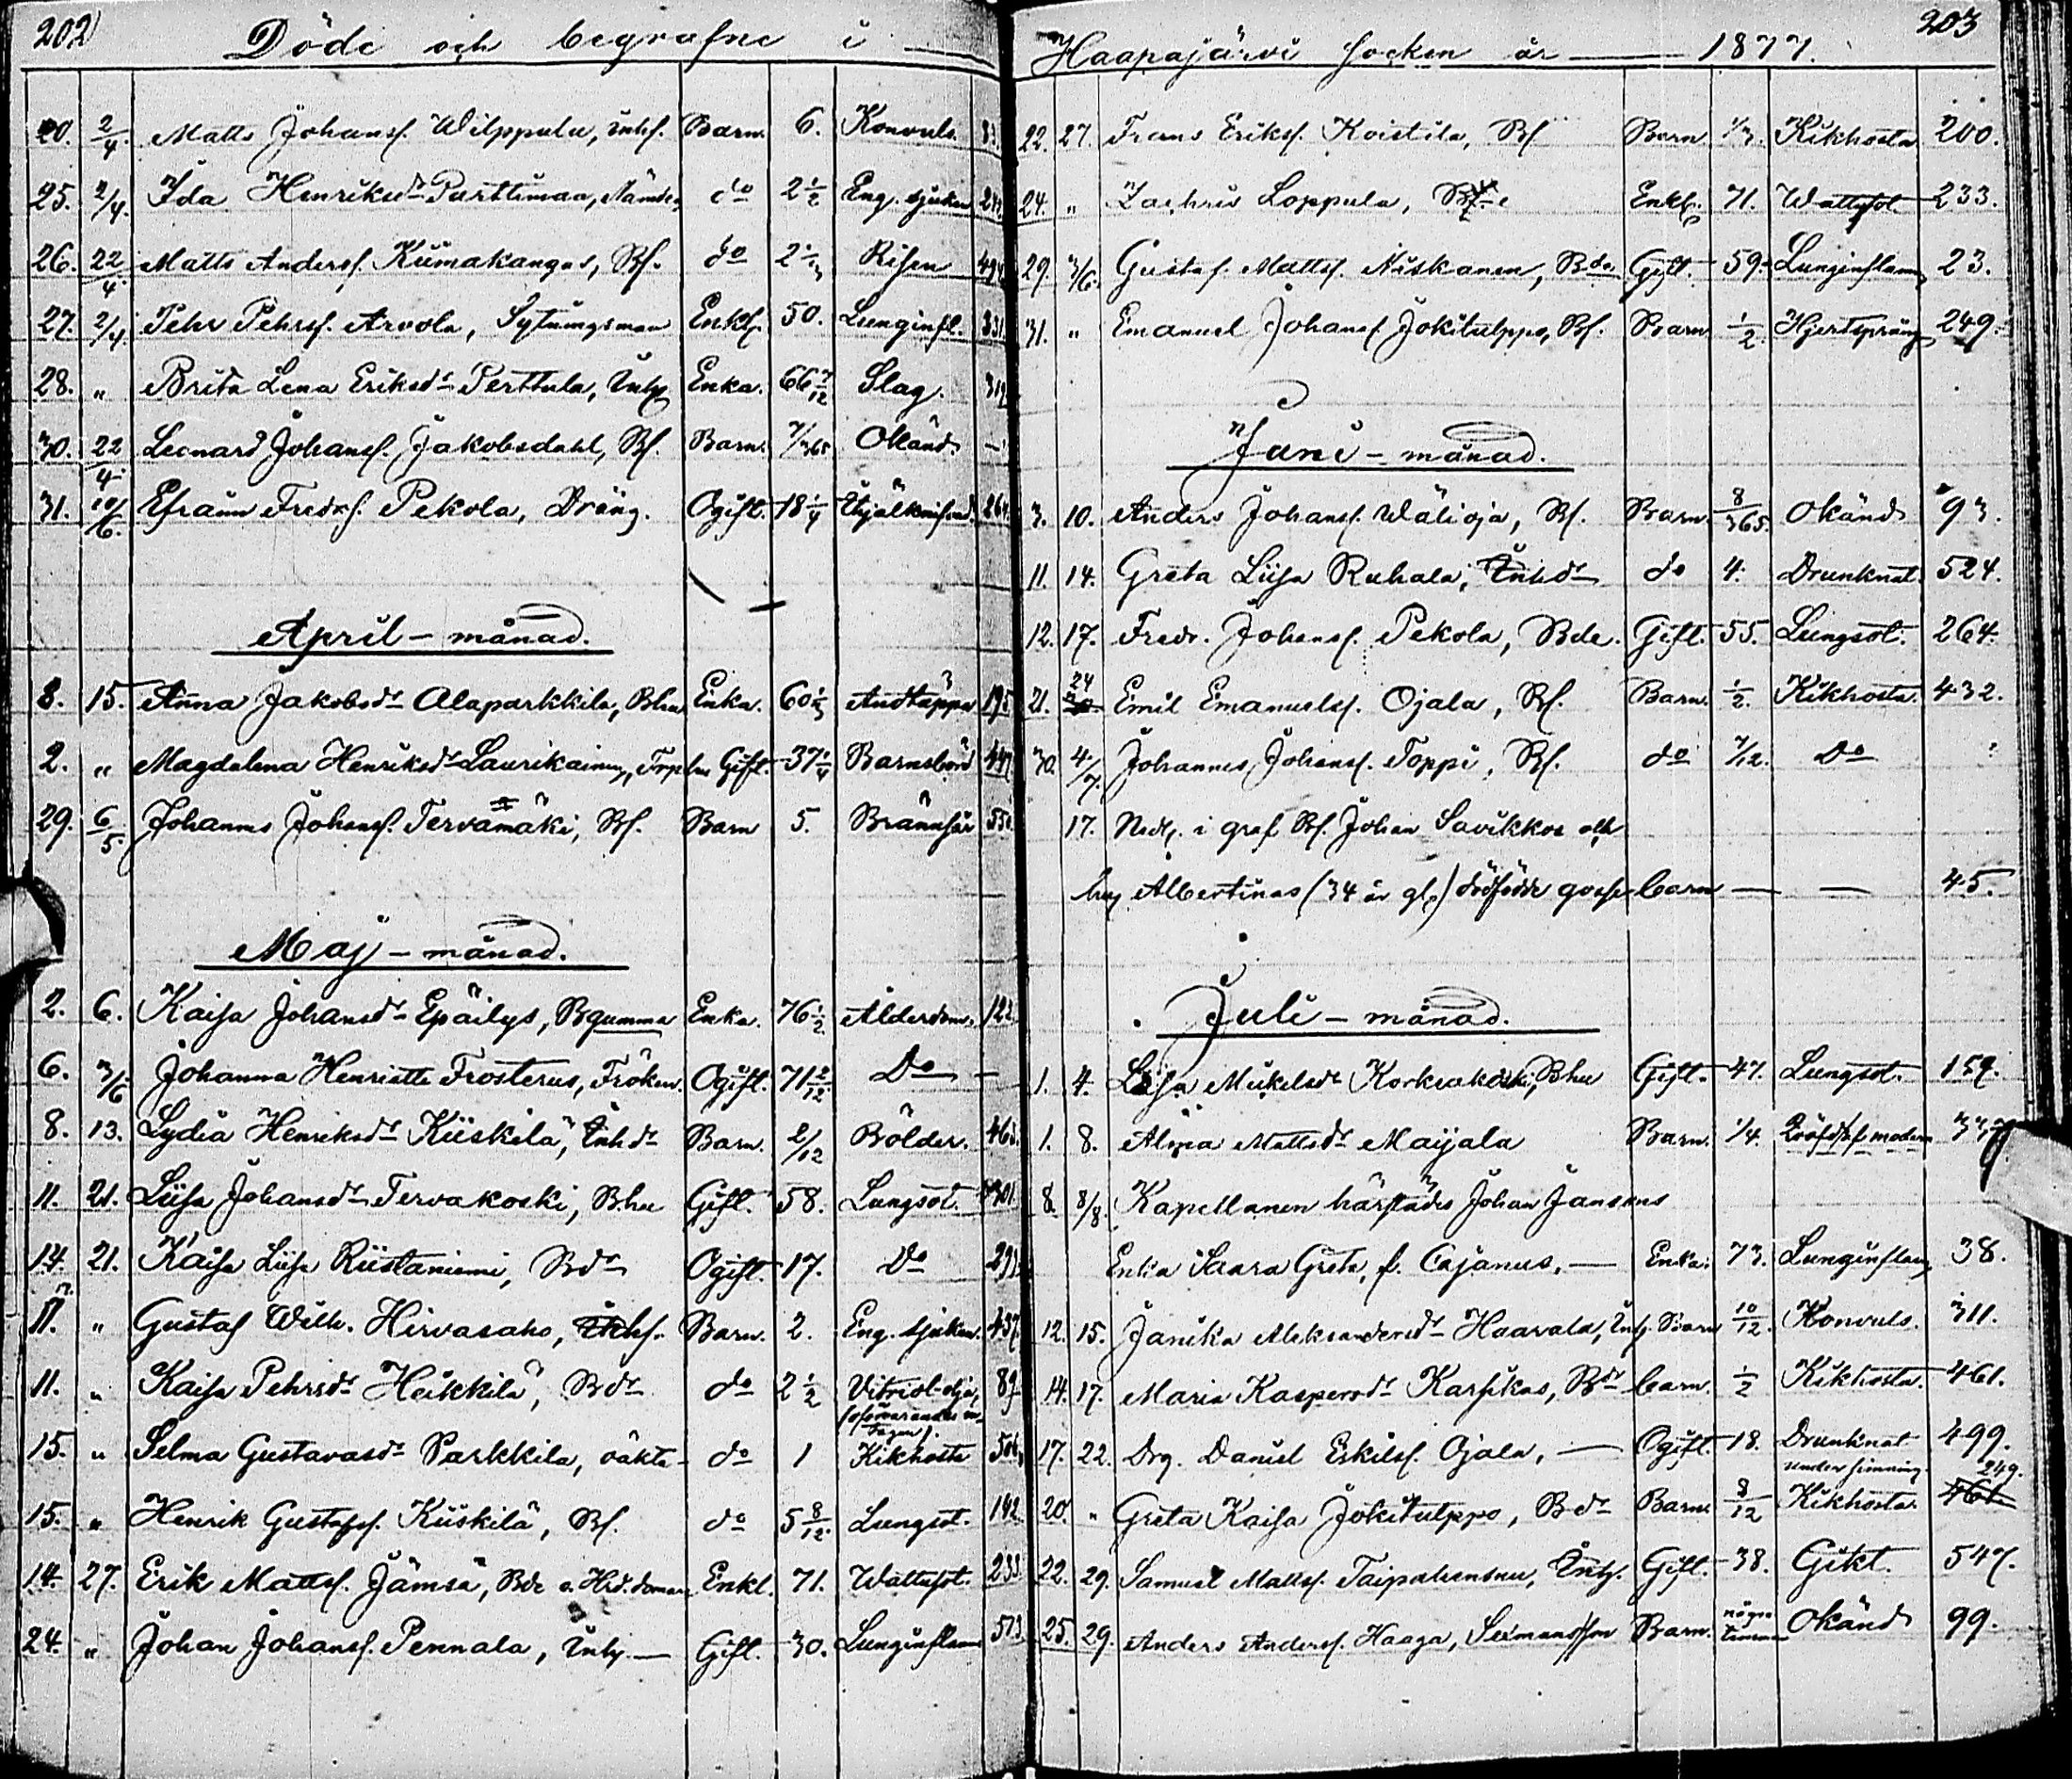 202
Döde och begrafne i
20. 2/4. Matts Johansf. Wilppula, inhf. Barn. 6. Konvuls.
25. 2/4. Ida Henriksdr Parttimaa, do 2 1/2 Eng. sjukan
26. 22/4. Matts Andersf. Kumakangas, Bf. do Risen
27. 2/4 Pehr Pehrsf. Arvola, Sytningsman Enkl. 50. Lunginfl. 331
28. " Brita Lena Eriksdr Perttula, Inh. Enka. 66 7/12 Slag. 319
30. 22/4 Leonard Johansf. Jakobsdahl, Bf. Barn. 7/365 Okänd. —
31. 10/6. Efraim Fredrf. Pekola, Dräng. Ogift. 18 1/4 264
April - månad.
8. 15. Anna Jakobsdr Alaparkkila, Bhu Enka. Andtäppa 195
2. " Magdalena Henriksdr Laurikainen, Gift. 37 1/4 Barnsbörd
29. 6/5. Johannes Johansf. Tervamäki, Bf. Barn 5. Brännsår
Maj - månad.
2. 6. Kaisa Johansdr Epäilys, Bgumma Enka. 76 1/2 Ålderdom. 122
6. 3/6 Johanna Henriette Frosterus, Fröken. Ogift. 71 2/12. Do —
8. 13. Lydia Henriksdr Kiiskilä, Inhdr Barn. 2/12 Bölder.
11. 21. Liisa Johansdr Tervakoski, Bhu Gift. 58. Lungsot. 301
14. 21. Kaisa Liisa Riistaniemi, Bdr Ogift. 17. Do
11. " Gustaf Wilh. Hirvasaho, Barn. 2. Eng. sjukan. 437
11. " Kaisa Pehrsdr Heikkilä, Bdr do 2 1/2 Vitriol-olja, 89
15. " Selma Gustavasdr Parkkila, oäkta - do 1 Kikhosta 506
15. " Henrik Gustafsf. Kiiskilä, Bf. do 5 8/12. Lungsot. 142
14. 27. Erik Mattsf. Jämsä, Bde Enkl. 71. Wattusot. 233
24. " Johan Johansf. Pennala, Inh. — Gift. 30. Lunginflam 513
203
Haapajärvi socken år — 1877.
22. 27. Frans Eriksf. Koistila, Bf Barn 1/3. Kikhosta. 200.
24. " Zachris Loppula, Enkl. 71. Wattusot 233.
29. 3/6. Gustaf Mattsf. Niskanen, Bde Gift. 59. Lunginflam 23.
31. " Emanuel Johansf Jokitulppo, Bf. Barn 1/2. Hjertspräng 249.
Juni - månad.
3. 10. Anders Johansf. Wälioja, Bf. Barn. 8/365. Okänd 93.
11. 14. Greta Liisa Ruhala, Inhdr do 4. Drunknat. 524.
12. 17. Fredr. Johansf. Pekola, Bde. Gift. 55. Lungsot. 264.
21. 24 Emil Emanuelsf. Ojala, Bf. Barn. 1/2. Kikhosta. 432.
30. 4/7. Johannes Johansf. Toppi, Bf. do 7/12. Do ?
17. Neds. i graf Bf. Johan Savikkos och
hus Albertinas (34 år gl.) dödfödde gosse barn — — 45.
Juli - månad.
1. 4. Liisa Mikelsdr Korkiakoski, Bhu Gift. 47. Lungsot. 159.
1. 8. Alina Mattsdr Maijala Barn. 1/4.
8. 8/8. Kapellanen härstädes Johan Jansons
Enka Saara Greta, f. Cajanus. — Enka. 73. Lunginflam 38.
12. 15. Janika Aleksandersdr Haavala, Inh. Barn 10/12. Konvuls. 311.
14. 17. Maria Kaspersdr Karsikas, Bdr barn. 1/2 Kikhosta. 461.
17. 22. Drg. Daniel Eskilsf. Ojala, — Ogift. 18. Drunknat under simning. 499.
20. " Greta Kaisa Jokitulppo, Bdr Barn. 8/12 Kikhosta. 461 249.
22. 29. Samuel Mattsf. Taipalensuu, Inh. Gift. 38. Gikt. 547.
25. 29. Anders Andersf. Haaga, Barn. några timmar Okänd 99.